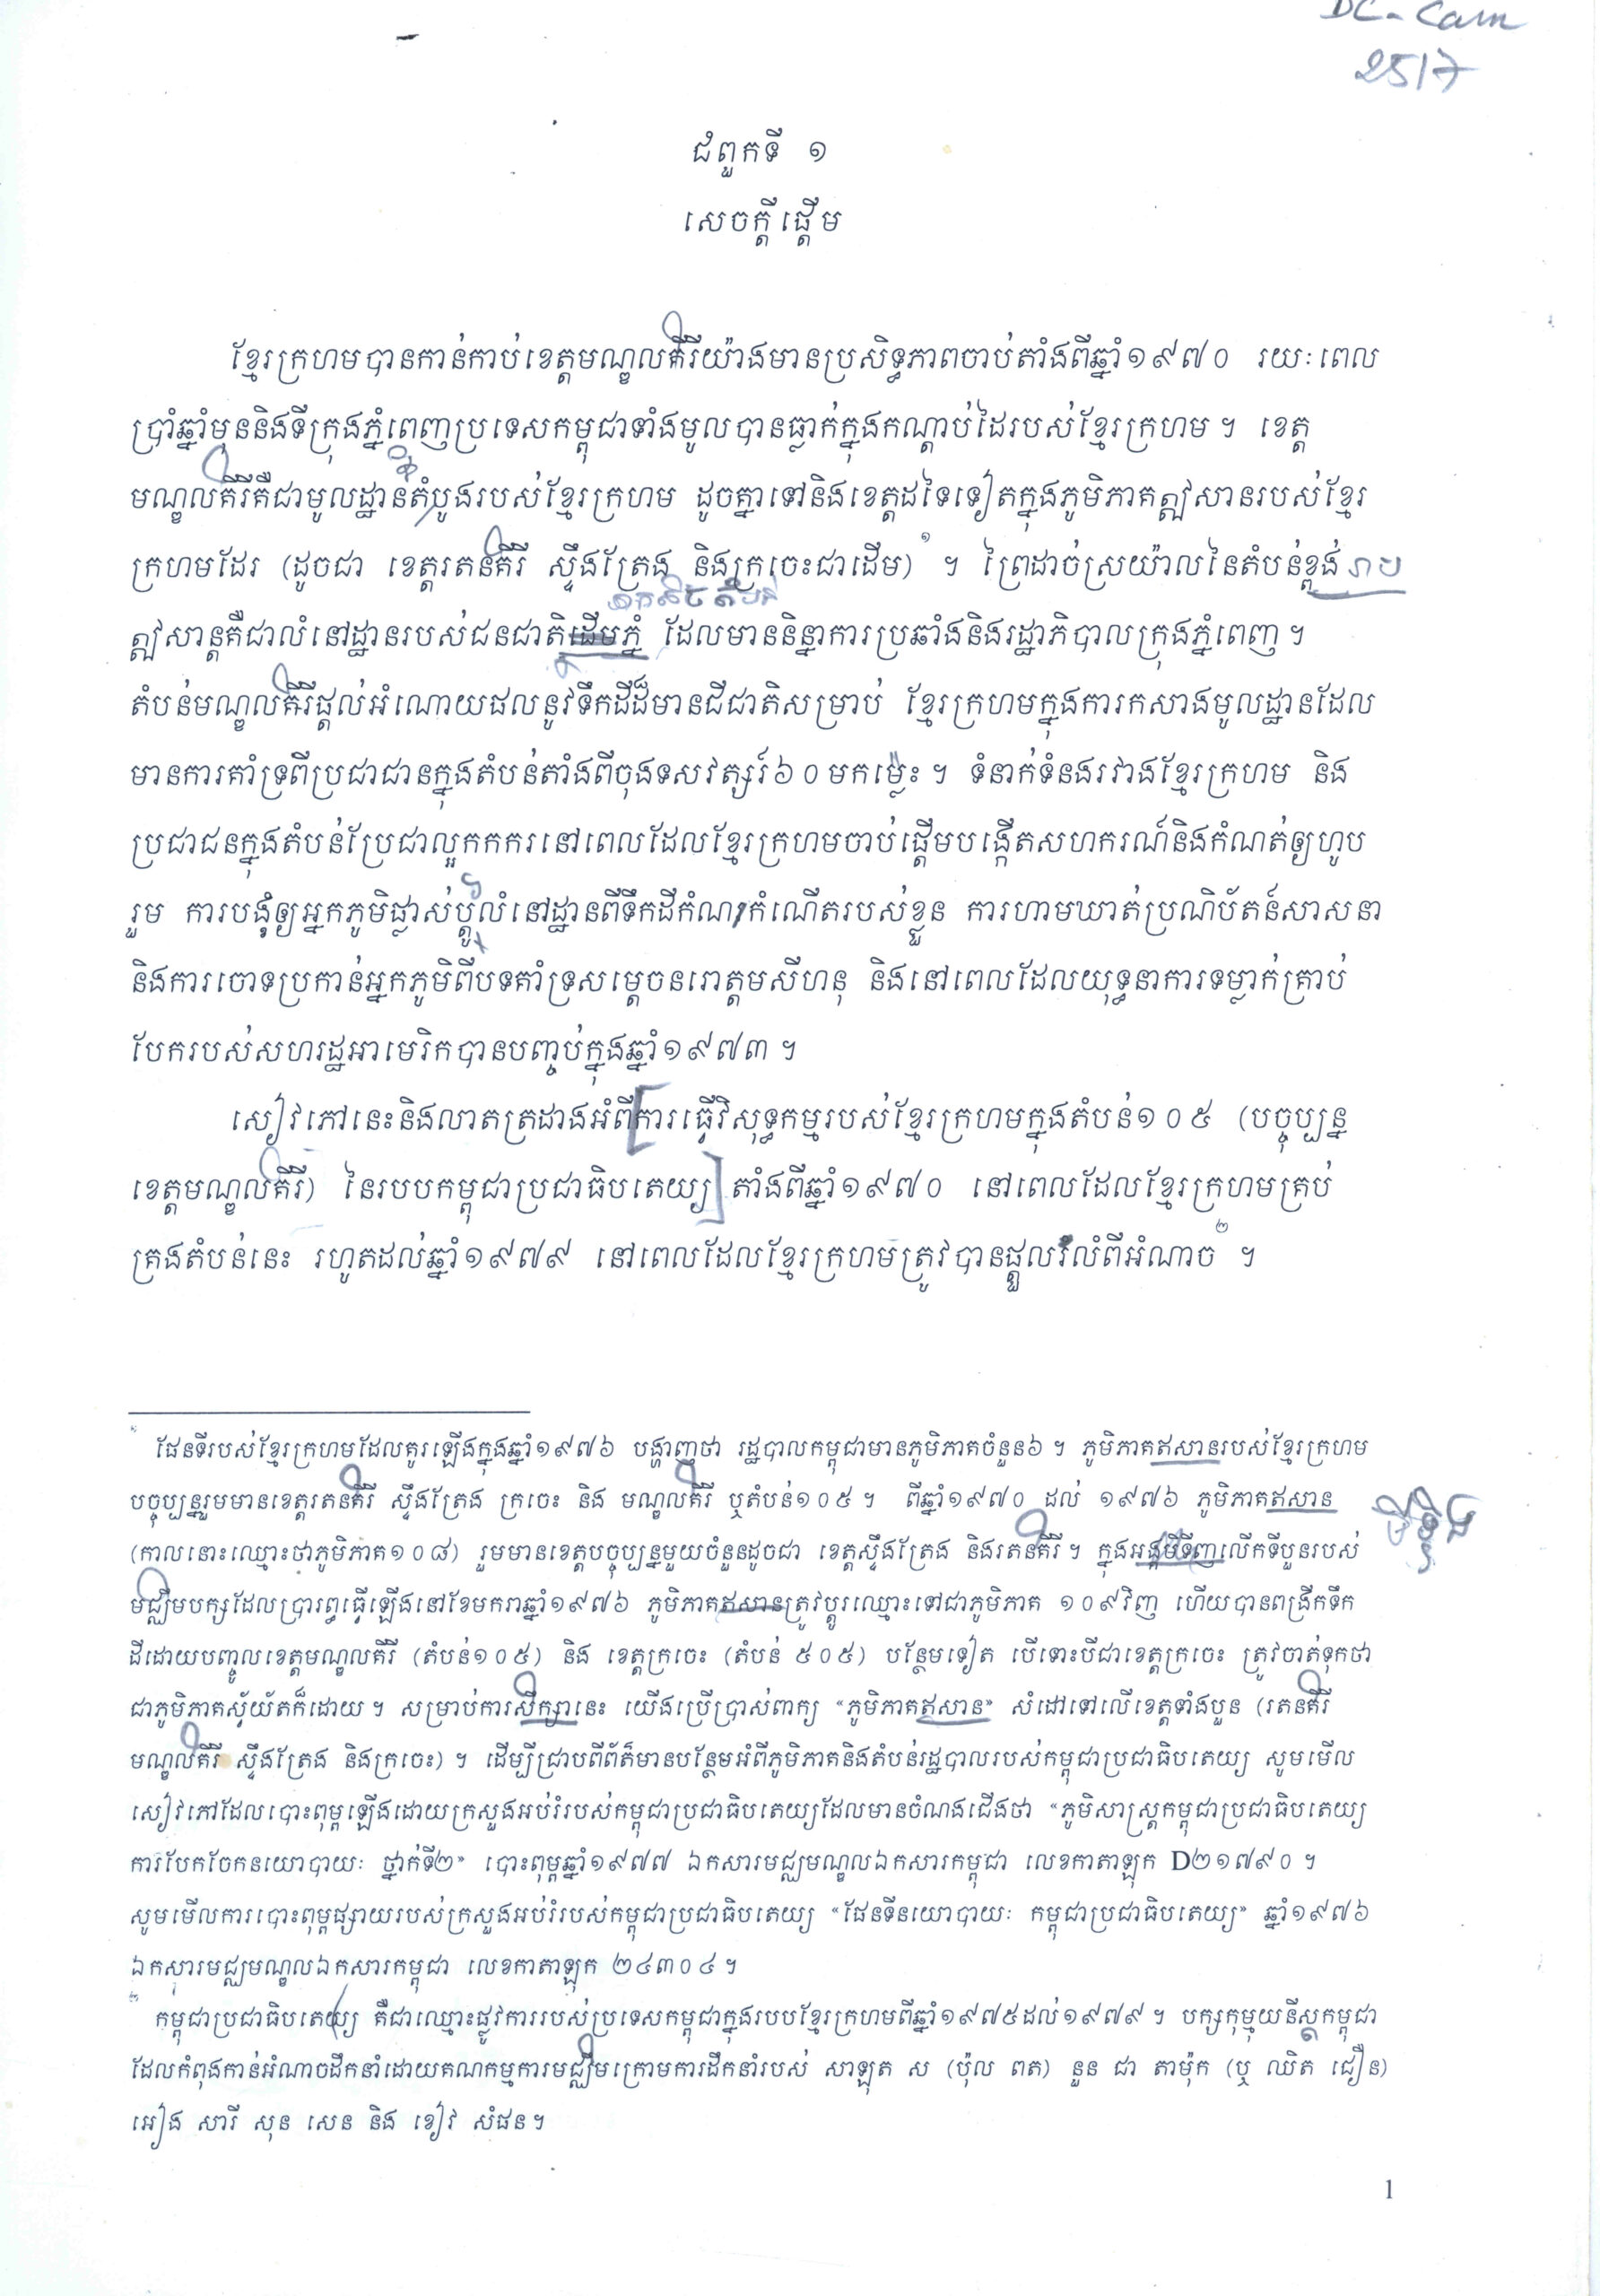 DC-Cam
25/7
ជំពូកទី ១
សេចក្ដីផ្ដើម
ខ្មែរក្រហមបានកាន់កាប់ខេត្តមណ្ឌលគីរីយ៉ាងមានប្រសិទ្ធភាពចាប់តាំងពីឆ្នាំ១៩៧០ រយៈពេល
ប្រាំឆ្នាំមុននិងទីក្រុងភ្នំពេញប្រទេសកម្ពុជាទាំងមូលបានធ្លាក់ក្នុងកណ្ដាប់ដៃរបស់ខ្មែរក្រហម ។ ខេត្ត
មណ្ឌលគីរីគឺជាមូលដ្ឋានតំបូងរបស់ខ្មែរក្រហម ដូចគ្នាទៅនិងខេត្តដទៃទៀតក្នុងភូមិភាគឦសានរបស់ខ្មែរ
ក្រហមដែរ (ដូចជា ខេត្តរតនគីរី ស្ទឹងត្រែង និងក្រចេះជាដើម)១ ។ ព្រៃដាច់ស្រយ៉ាលនៃតំបន់ខ្ពង់រាប
ឦសាន្តគឺជាលំនៅដ្ឋានរបស់ជនជាតិដើមភ្នំ ដែលមាននិន្នាការប្រឆាំងនិងរដ្ឋាភិបាលក្រុងភ្នំពេញ ។
តំបន់មណ្ឌលគីរីផ្ដល់អំណោយផលនូវទឹកដីដ៏មានជីជាតិសម្រាប់ ខ្មែរក្រហមក្នុងការកសាងមូលដ្ឋានដែល
មានការគាំទ្រពីប្រជាជានក្នុងតំបន់តាំងពីចុងទសវត្សរ៍៦០មកម្ល៉េះ ។ ទំនាក់ទំនងរវាងខ្មែរក្រហម និង
ប្រជាជនក្នុងតំបន់ប្រែជាល្អកកករនៅពេលដែលខ្មែរក្រហមចាប់ផ្ដើមបង្កើតសហករណ៍និងកំណត់ឲ្យហូប
រួម ការបង្ខំឲ្យអ្នកភូមិផ្លាស់ប្ដូលំនៅដ្ឋានពីទឹកដីកំណរកំណើតរបស់ខ្លួន ការហាមឃាត់ប្រណិប័តន៍សាសនា
និងការចោទប្រកាន់អ្នកភូមិពីបទគាំទ្រសម្ដេចនរោត្តមសីហនុ និងនៅពេលដែលយុទ្ធនាការទម្លាក់គ្រាប់
បែករបស់សហរដ្ឋអាមេរិកបានបញ្ចប់ក្នុងឆ្នាំ១៩៧៣ ។
សៀវភៅនេះនិងលាតត្រដាងអំពី[ការធ្វើវិសុទ្ធកម្មរបស់ខ្មែរក្រហមក្នុងតំបន់១០៥ (បច្ចុប្បន្ន
ខេត្តមណ្ឌលគីរី) នៃរបបកម្ពុជាប្រជាធិបតេយ្យ] តាំងពីឆ្នាំ១៩៧០ នៅពេលដែលខ្មែរក្រហមគ្រប់
គ្រងតំបន់នេះ រហូតដល់ឆ្នាំ១៩៧៩ នៅពេលដែលខ្មែរក្រហមត្រូវបានផ្ដួលរំលំពីអំណាច២ ។
១ ផែនទីរបស់ខ្មែរក្រហមដែលគូរឡើងក្នុងឆ្នាំ១៩៧៦ បង្ហាញថា រដ្ឋបាលកម្ពុជាមានភូមិភាគចំនួន៦ ។ ភូមិភាគឥសានរបស់ខ្មែរក្រហម
បច្ចុប្បន្នរួមមានខេត្តរតនគីរី ស្ទឹងត្រែង ក្រចេះ និង មណ្ឌលគីរី ឬតំបន់១០៥ ។ ពីឆ្នាំ១៩៧០ ដល់ ១៩៧៦ ភូមិភាគឥសាន
(កាលនោះឈ្មោះថាភូមិភាគ១០៨) រួមមានខេត្តបច្ចុប្បន្នមួយចំនួនដូចជា ខេត្តស្ទឹងត្រែង និងរតនគីរី ។ ក្នុងអង្គមីទីញលើកទីបួនរបស់
មជ្ឈឹមបក្សដែលប្រារព្ធធ្វើឡើងនៅខែមករាឆ្នាំ១៩៧៦ ភូមិភាគឥសានត្រូវប្ដូរឈ្មោះទៅជាភូមិភាគ ១០៩វិញ ហើយបានពង្រីកទឹក
ដីដោយបញ្ចូលខេត្តមណ្ឌលគីរី (តំបន់១០៥) និង ខេត្តក្រចេះ (តំបន់ ៥០៥) បន្ថែមទៀត បើទោះបីជាខេត្តក្រចេះ ត្រូវចាត់ទុកថា
ជាភូមិភាគស្វ័យ័តក៏ដោយ ។ សម្រាប់ការសិក្សានេះ យើងប្រើប្រាស់ពាក្យ “ភូមិភាគឥសាន” សំដៅទៅលើខេត្តទាំងបួន (រតនគីរី
មណ្ឌលគីរី ស្ទឹងត្រែង និងក្រចេះ) ។ ដើម្បីជ្រាបពីព័ត៌មានបន្ថែមអំពីភូមិភាគនិងតំបន់រដ្ឋបាលរបស់កម្ពុជាប្រជាធិបតេយ្យ សូមមើល
សៀវភៅដែលបោះពុម្ពឡើងដោយក្រសួងអប់រំរបស់កម្ពុជាប្រជាធិបតេយ្យដែលមានចំណងជើងថា “ភូមិសាស្ត្រកម្ពុជាប្រជាធិបតេយ្យ
ការបែកចែកនយោបាយៈ ថ្នាក់ទី២” បោះពុម្ពឆ្នាំ១៩៧៧ ឯកសារមជ្ឈមណ្ឌលឯកសារកម្ពុជា លេខកាតាឡុក D២១៧៩០ ។
សូមមើលការបោះពុម្ពផ្សាយរបស់ក្រសួងអប់រំរបស់កម្ពុជាប្រជាធិបតេយ្យ “ផែនទីនយោបាយៈ កម្ពុជាប្រជាធិបតេយ្យ” ឆ្នាំ១៩៧៦
ឯកសារមជ្ឈមណ្ឌលឯកសារកម្ពុជា លេខកាតាឡុក ២៤៣០៤ ។
២ កម្ពុជាប្រជាធិបតេយ្យ គឺជាឈ្មោះផ្លូវការរបស់ប្រទេសកម្ពុជាក្នុងរបបខ្មែរក្រហមពីឆ្នាំ១៩៧៥ដល់១៩៧៩ ។ បក្សកុម្មុយនីស្តកម្ពុជា
ដែលកំពុងកាន់អំណាចដឹកនាំដោយគណកម្មការមជ្ឈឹមក្រោមការដឹកនាំរបស់ សាឡុត ស (ប៉ុល ពត) នួន ជា តាម៉ុក (ឬ ឈិត ជឿន)
អៀង សារី សុន សេន និង ខៀវ សំផន ។
1